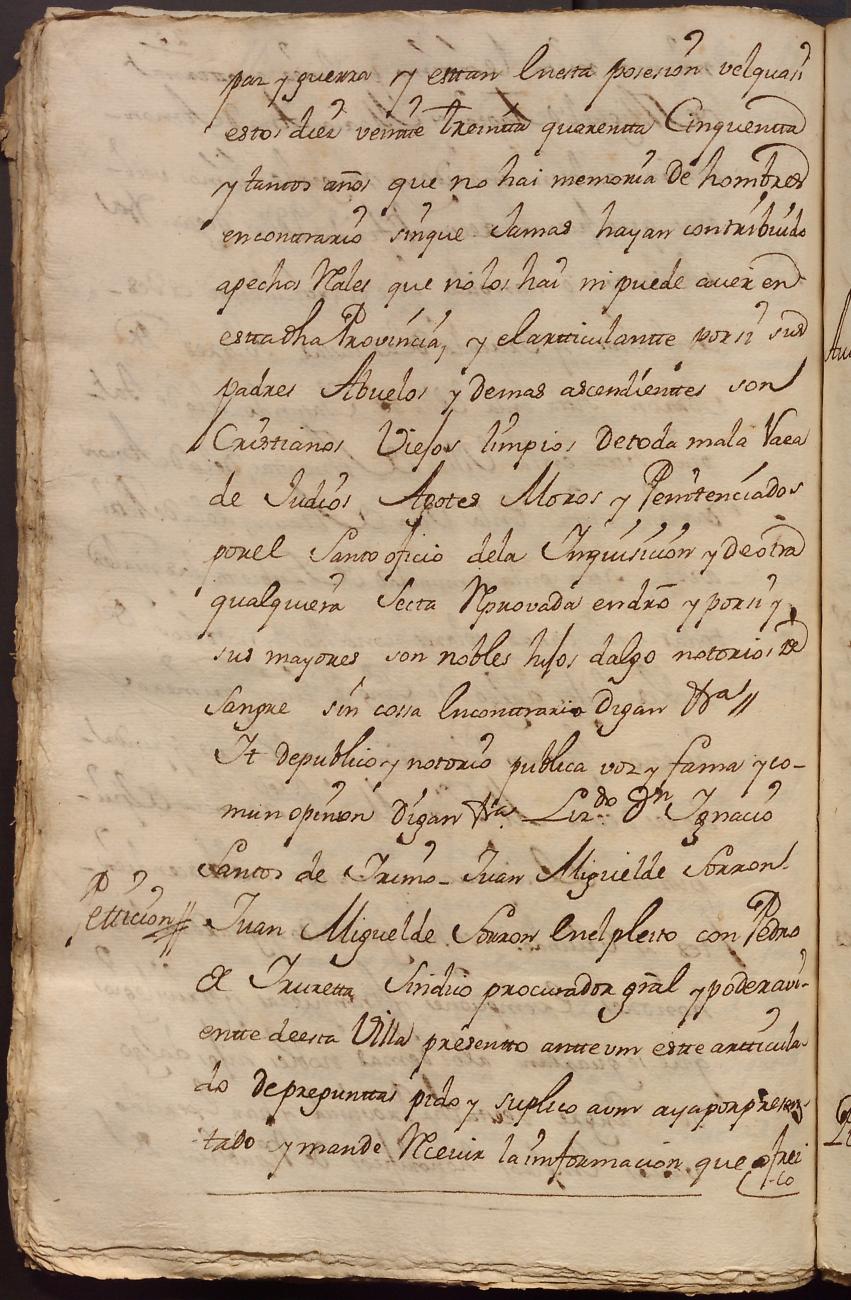 paz y guerra y esttan en esta posesion velquasi
estos diez veintte treintta quarentta Cinquentta
y tantos años que no hai memoria de hombres
encontrario sinque Jamas hayan contribuido
apechos Rales que no los hai ni puede aver en
estta dha Provincia, y el artticulantte por si sus
padres Abuelos y demas ascendienttes son
Cristianos Viejos limpios de toda mala Raza
de Judios, Agotes Moros y Penitenciados
por el Santo oficio dela Inquisicion y de otra
qualquiera Secta Reprovada en dro y por si y
sus mayores son nobles hijos dalgo notorios de
Sangre sin cossa en conttrario digan &ra //
It de publico y notorio publica voz y fama y co-
mun opinion digan &ra. Lizdo Dn Ignacio
Santos de Irimo - Juan Miguel de Sorron.
Petticion // Juan Miguel de Sorron en el pleito con Pedro
de Iruretta Sindico procurador gral y poderavi-
entte de esta Villa presentto antte vm estte artticula-
do de preguntas pido y suplico a vm aya por presen-
tado y mande Recevir la informacion que ofrez
co